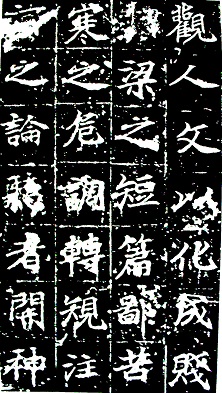 觀人文以化成賤
梁之短篇鄙苦
寒之危調轉規注
之論聽者開神